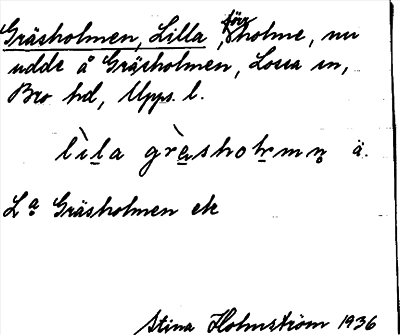 Gräsholmen, Lilla, förr holme, nu
udde å Gräsholmen, Lossa sn,
Bro hd, Upps. l.
lìla grèsholmn ä.
La Gräsholmen ek
Stina Holmström 1936